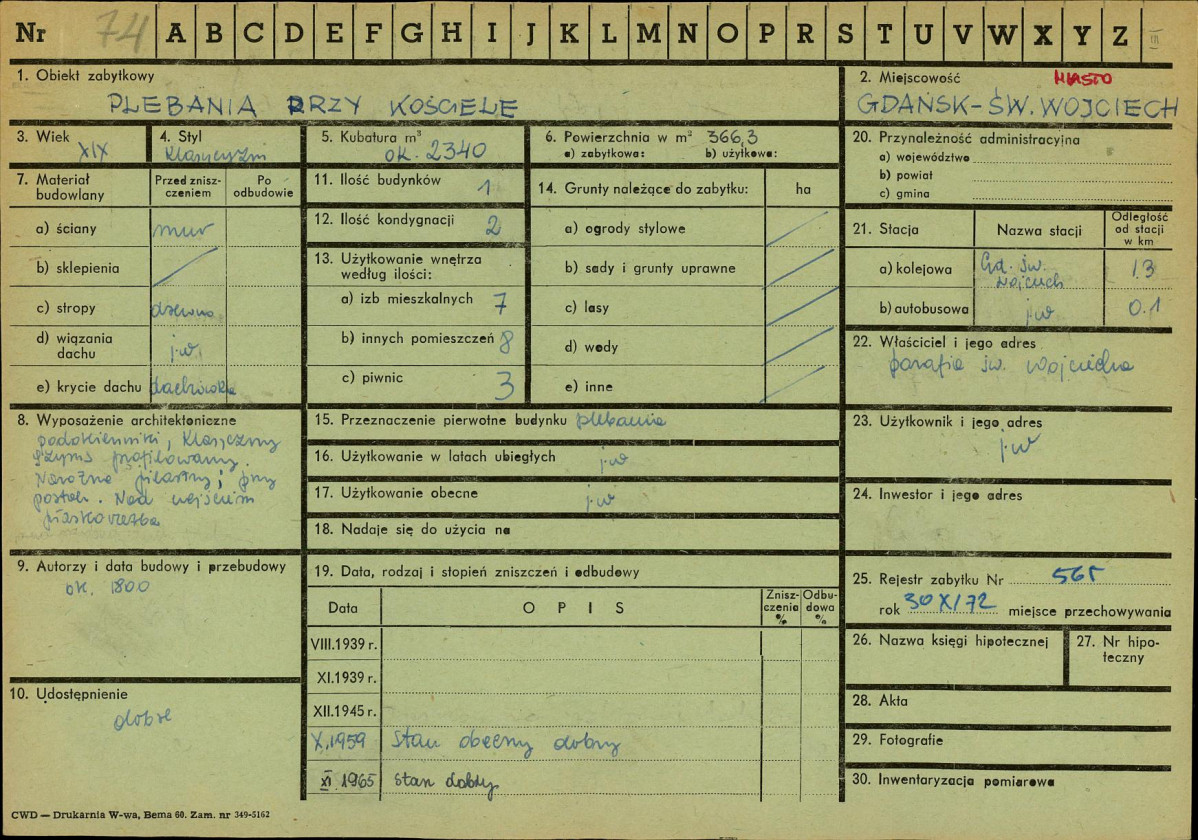 Nr 74 A B C D E F G H I J K L M N O P R S T U V W X Y Z III
1. Obiekt zabytkowy
PLEBANIA PRZY KOŚCIELE
2. Miejscowość MIASTO
GDAŃSK-ŚW. WOJCIECH
3. Wiek
XIX
4. Styl
Klasycyzm
5. Kubatura m³
ok. 2340
6. Powierzchnia w m² 366,3
a) zabytkowa: b) użytkowa:
7. Materiał budowlany
Przed zniszczeniem
Po odbudowie
a) ściany mur
b) sklepienia
c) stropy drewno
d) wiązania dachu j.w.
e) krycie dachu dachówka
8. Wyposażenie architektoniczne
podokienniki, klasyczny
gzyms profilowany.
Narożne pilastry; przy
. Nad wejściem
płaskorzeźba
9. Autorzy i data budowy i przebudowy
ok. 1800
10. Udostępnienie
dobre
11. Ilość budynków 1
12. Ilość kondygnacji 2
13. Użytkowanie wnętrza
według ilości:
a) izb mieszkalnych 7
b) innych pomieszczeń 8
c) piwnic 3
14. Grunty należące do zabytku: ha
a) ogrody stylowe
b) sady i grunty uprawne
c) lasy
d) wody
e) inne
15. Przeznaczenie pierwotne budynku plebania
16. Użytkowanie w latach ubiegłych j.w
17. Użytkowanie obecne j.w
18. Nadaje się do użycia na
19. Data, rodzaj i stopień zniszczeń i odbudowy
Data OPIS Zniszczenia % Odbudowa %
VIII.1939 r.
XI.1939 r.
XII.1945 r.
X.1959 Stan obecny dobry
XI 1965 stan dobry
20. Przynależność administracyjna
a) województwo
b) powiat
c) gmina
21. Stacja Nazwa stacji Odległość od stacji w km
a) kolejowa Gd. św. Wojciech 1.3
b) autobusowa j.w 0.1
22. Właściciel i jego adres
parafia św. Wojciecha
23. Użytkownik i jego adres
j.w
24. Inwestor i jego adres
25. Rejestr zabytku Nr 565
rok 30 X/72 miejsce przechowywania
26. Nazwa księgi hipotecznej
27. Nr hipoteczny
28. Akta
29. Fotografie
30. Inwentaryzacja pomiarowa
CWD — Drukarnia W-wa, Bema 60. Zam. nr 349-5162